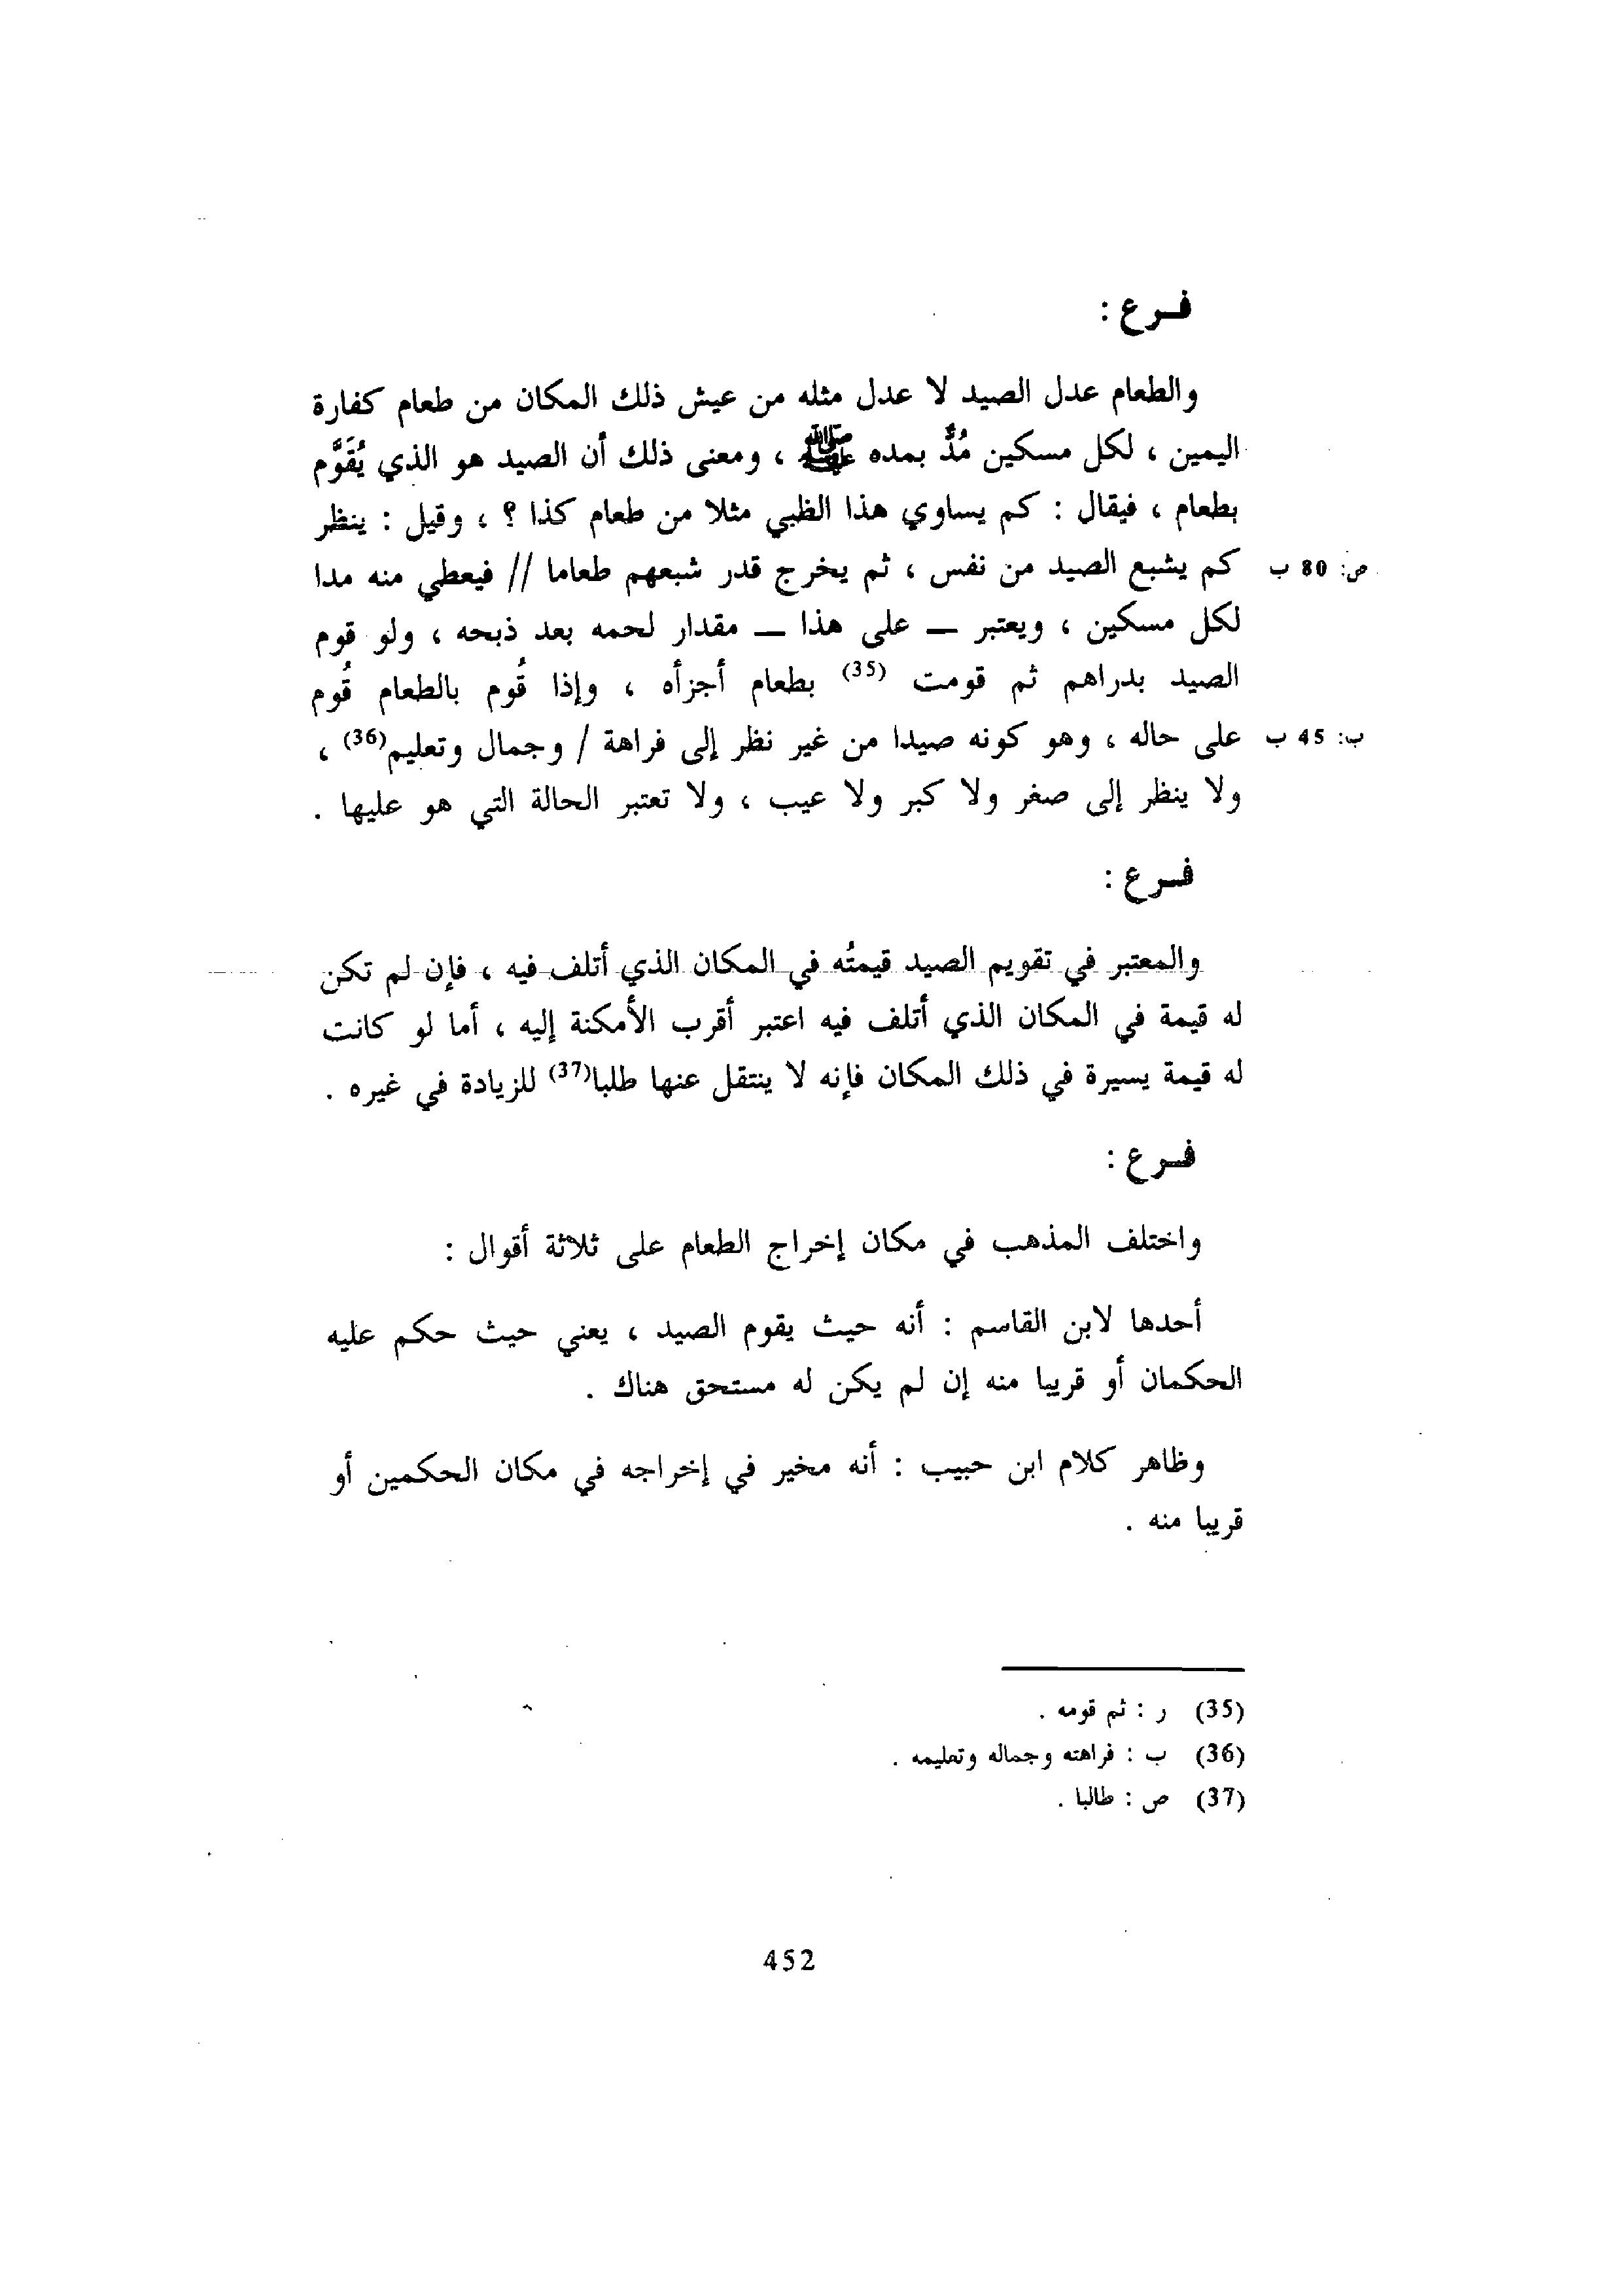 فـرع :
والطعام عدل الصيد لا عدل مثله من عيش ذلك المكان من طعام كفارة
اليمين ، لكل مسكين مُدٌّ بمده ﷺ ، ومعنى ذلك أن الصيد هو الذي يُقَوَّم
بطعام ، فيقال : كم يساوي هذا الظبي مثلا من طعام كذا ؟ ، وقيل : ينظر
ص: 80 ب كم يشبع الصيد من نفس ، ثم يخرج قدر شبعهم طعاما // فيعطي منه مدا
لكل مسكين ، ويعتبر — على هذا — مقدار لحمه بعد ذبحه ، ولو قوم
الصيد بدراهم ثم قومت (35) بطعام أجزأه ، وإذا قُوم بالطعام قُوم
ب: 45 ب على حاله ، وهو كونه صيدا من غير نظر إلى فراهة / وجمال وتعليم(36) ،
ولا ينظر إلى صغر ولا كبر ولا عيب ، ولا تعتبر الحالة التي هو عليها .
فـرع :
والمعتبر في تقويم الصيد قيمتُه في المكان الذي أتلف فيه ، فإن لم تكن
له قيمة في المكان الذي أتلف فيه اعتبر أقرب الأمكنة إليه ، أما لو كانت
له قيمة يسيرة في ذلك المكان فإنه لا ينتقل عنها طلبا(37) للزيادة في غيره .
فـرع :
واختلف المذهب في مكان إخراج الطعام على ثلاثة أقوال :
أحدها لابن القاسم : أنه حيث يقوم الصيد ، يعني حيث حكم عليه
الحكمان أو قريبا منه إن لم يكن له مستحق هناك .
وظاهر كلام ابن حبيب : أنه مخير في إخراجه في مكان الحكمين أو
قريبا منه .
(35) ر : ثم قومه .
(36) ب : فراهته وجماله وتعليمه .
(37) ص : طالبا .
452